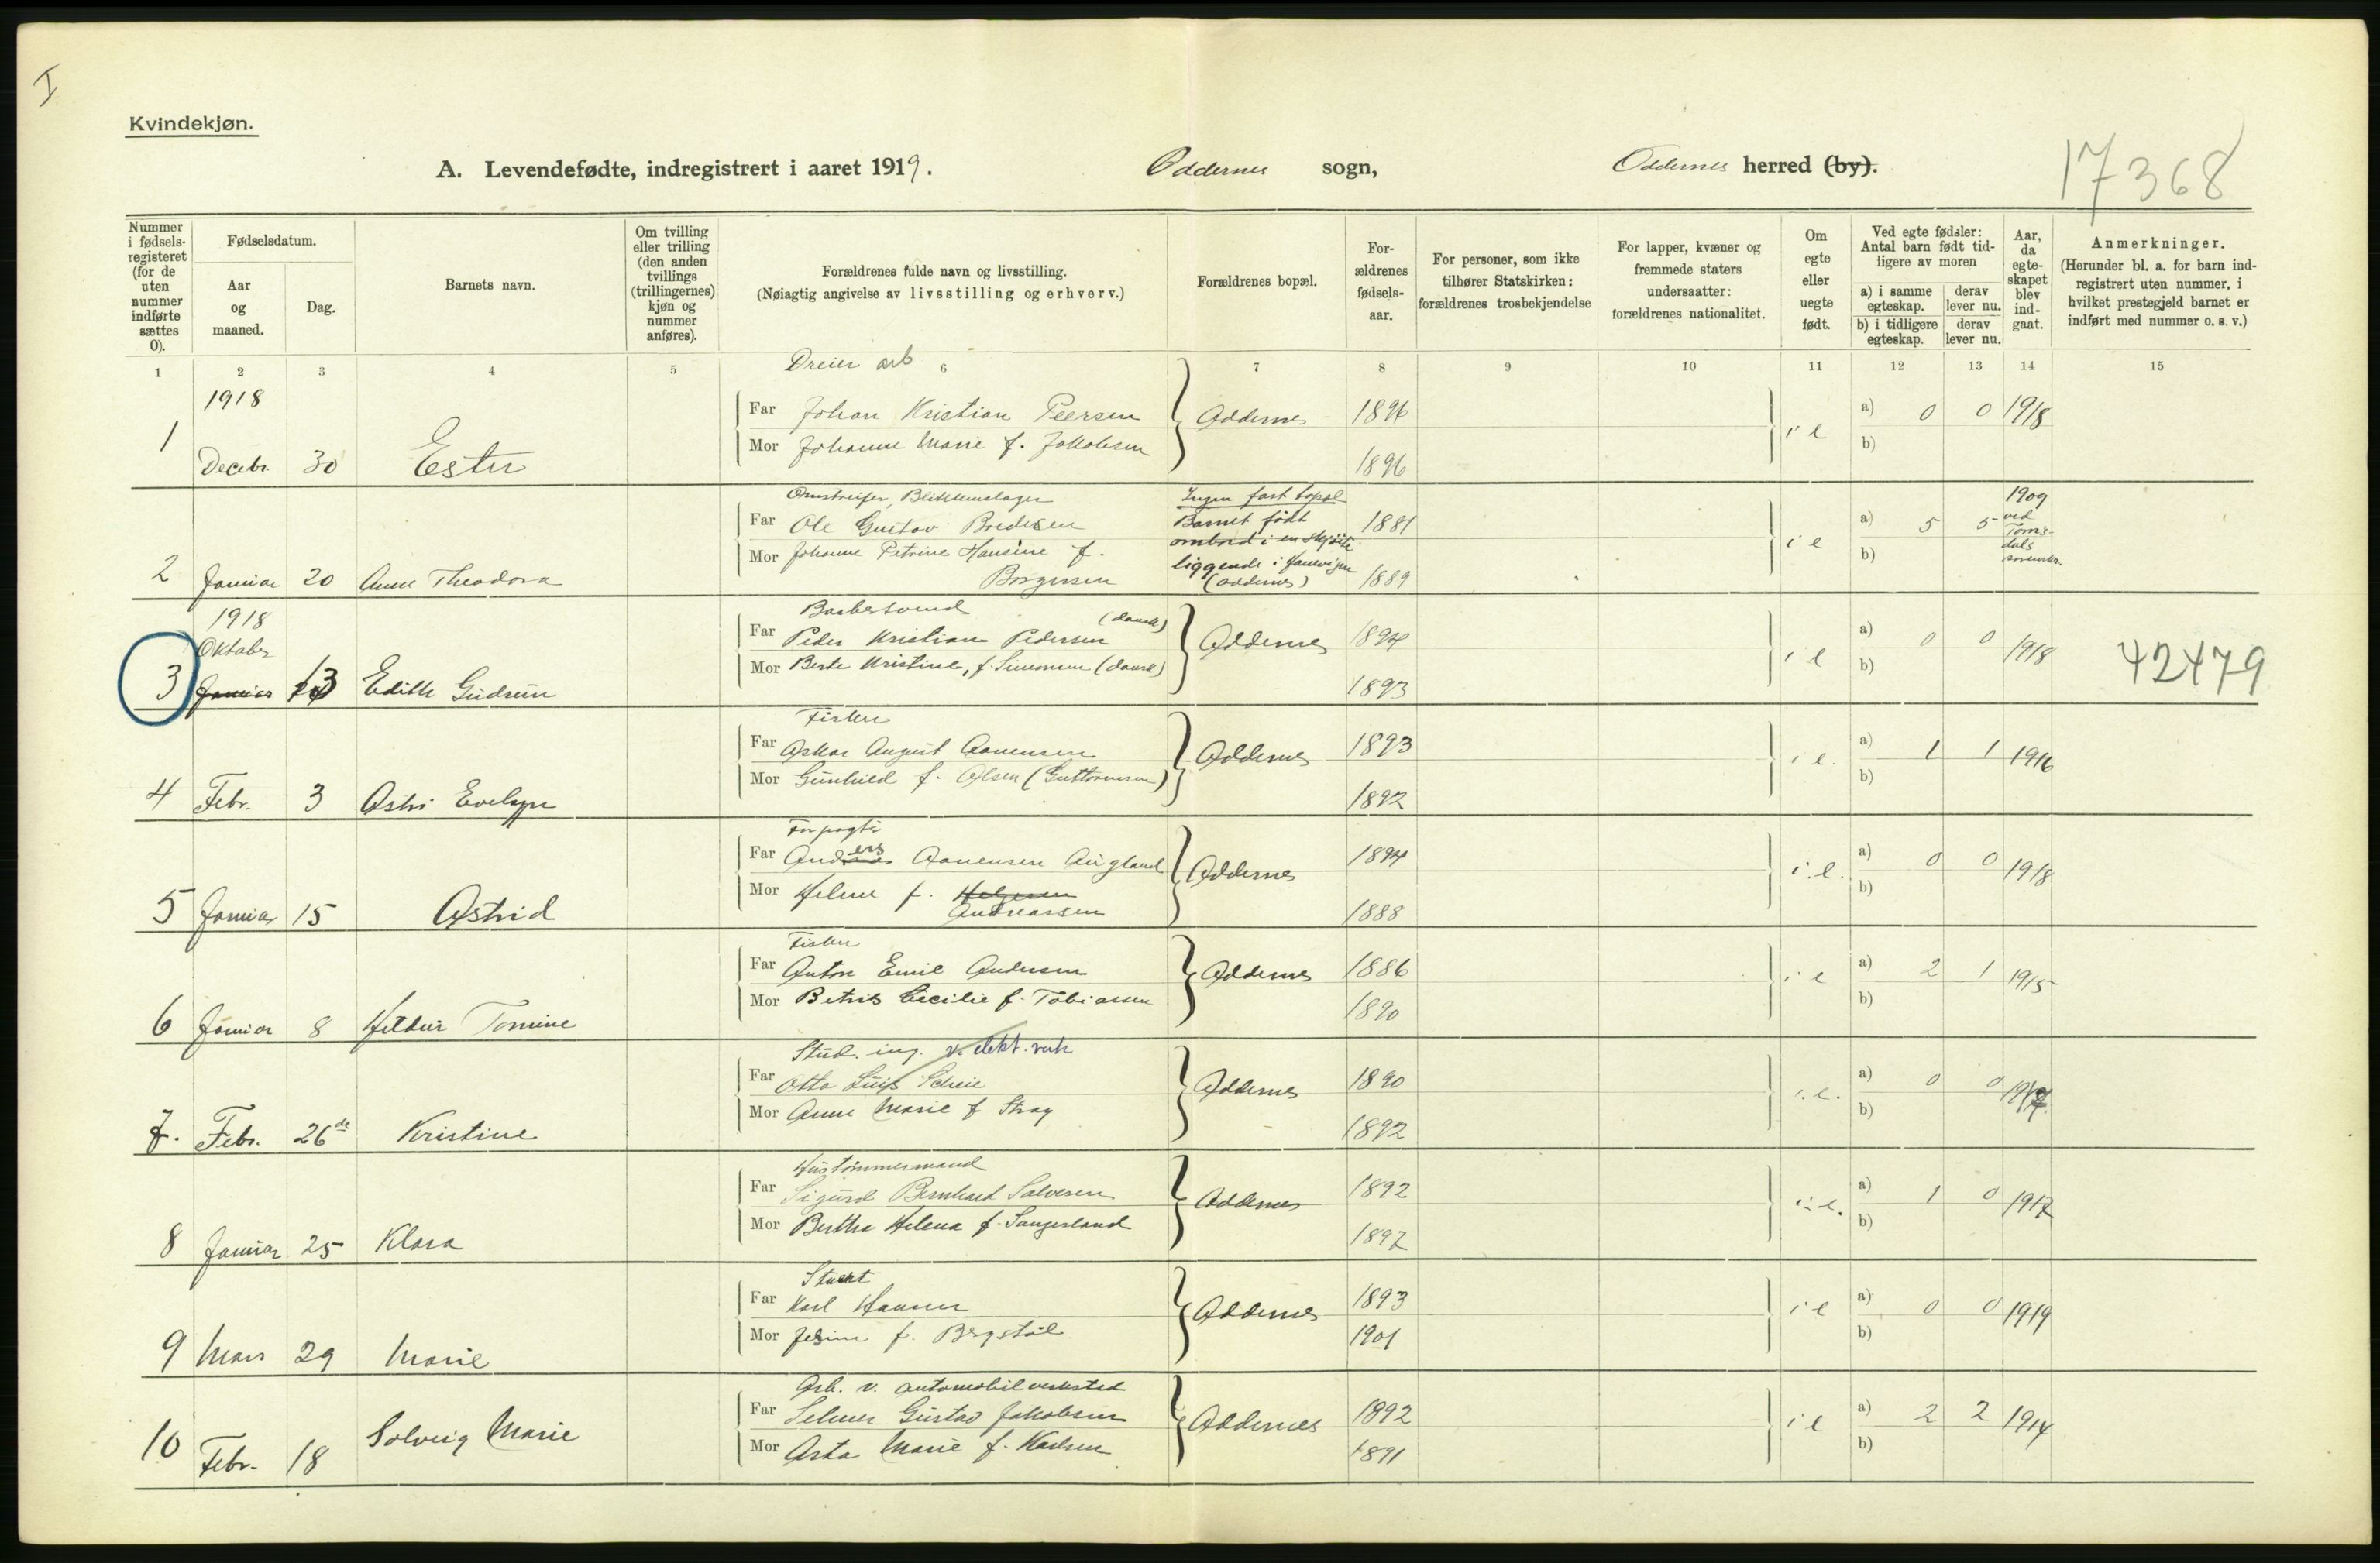 I
Kvindekjøn.
A. Levendefødte, indregistrert i aaret 1919. Oddernes sogn, Oddernes herred (by).
17368
Nummer i fødsels-registeret (for de uten nummer indførte sættes 0).
Fødselsdatum.
Aar og maaned.
Dag.
Barnets navn.
Om tvilling eller trilling (den anden tvillings (trillingernes) kjøn og nummer anføres).
Forældrenes fulde navn og livsstilling.
(Nøiagtig angivelse av livsstilling og erhverv.)
Forældrenes bopæl.
For-ældrenes fødsels-aar.
For personer, som ikke tilhører Statskirken: forældrenes trosbekjendelse
For lapper, kvæner og fremmede staters undersaatter: forældrenes nationalitet.
Om egte eller uegte født.
Ved egte fødsler: Antal barn født tid-ligere av moren
a) i samme egteskap. derav lever nu.
b) i tidligere egteskap. derav lever nu.
Aar, da egte-skapet blev ind-gaat.
Anmerkninger.
(Herunder bl. a. for barn ind-registrert uten nummer, i hvilket prestegjeld barnet er indført med nummer o. s. v.)
1 2 3 4 5 6 7 8 9 10 11 12 13 14 15
Dreier arb
1918
Far Johan Kristian Peersen Oddernes 1896 a) 0 0 1918
1 Decbr. 30 Ester
Mor Johanne Marie f. Jakobsen 1896 i e b)
Omstreifer, Blikkenslager Ingen fast bopæl 1909
Far Ole Gustav Bredesen Barnet født 1881 a) 5 5 ved
Mor Johanne Petrine Hansine f. ombord i en skjøite i e b)
liggende i
2 Januar 20 Anne Theodora Borgersen (Oddernes) 1889
1918
Oktober
Far Peder Kristian Pedersen (dansk) Oddernes 1894 a) 0 0 1918
Mor Berte Kristine, f. Simonsen (dansk) 1893 i e b)
3 Januar 13 Edith Gudrun 42479
Fisker
Far Oskar August Aanensen Oddernes 1893 a) 1 1 1916
Mor Gunhild f. Olsen (Guttormsen) 1892 i e. b)
4 Febr. 3 Astri Evelyn
Forpagter
Far Anders Aanensen Augland Oddernes 1894 a) 0 0 1918
Mor Helene f. Helgesen 1888 i.e. b)
Andreassen
5 Januar 15 Astrid
Fisker
Far Anton Emil Andersen Oddernes 1886 a) 2 1 1915
Mor Betris Cecilie f. Tobiassen 1890 i e b)
6 Januar 8 Hildur Tomine
Stud. ing. v. elekt. verk
Far Otto Luis Scheie Oddernes 1890 a) 0 0 1917
Mor Anne Marie f Stray 1892 i.e. b)
7. Febr. 26de Kristine
Hustømmermand
Far Sigurd Bernhard Salvesen Oddernes 1892 a) 1 0 1917
Mor Bertha Helena f. Sangesland 1897 i.e. b)
8 Januar 25 Klara
Far Karl Hansen Oddernes 1893 a) 0 0 1919
Mor f. Bergstøl 1901 i e b)
9 Mars 29 Marie
Arb. v. automobilverksted
Far Selmer Gustav Jakobsen Oddernes 1892 a) 2 2 1914
Mor Asta Marie f. Karlsen 1891 i e b)
10 Febr. 18 Solveig Marie